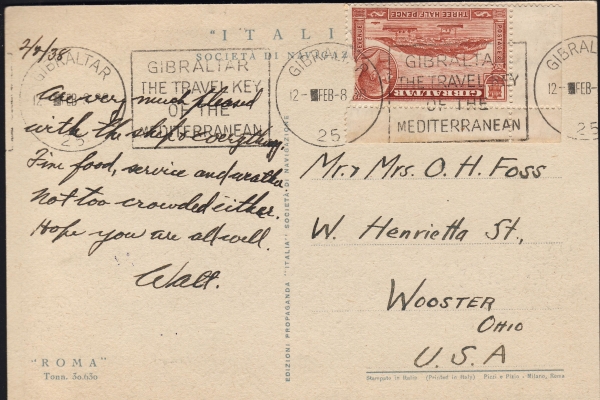 "ITALI
SOCIETÀ DI NAVIGAZ
2/7/38
Am very much pleased
with the ship & everything.
Fine food, service and weather
Not too crowded either.
Hope you are all well.
Walt.
"ROMA"
Tonn. 30.650
EDIZIONI PROPAGANDA "ITALIA" SOCIETÀ DI NAVIGAZIONE
GIBRALTAR
12- FEB-8
25
GIBRALTAR
THE TRAVEL KEY
OF THE
MEDITERRANEAN
GIBRALTAR
12- FEB-8
25
GIBRALTAR
THE TRAVEL KEY
OF THE
MEDITERRANEAN
GIBRALTAR
12-
25
THREE HALF PENCE
GIBRALTAR
Mr. & Mrs. O. H. Foss
W. Henrietta St.,
WOOSTER
OHIO
U.S.A
Stampato in Italia (Printed in Italy) Pizzi e Pizio - Milano, Roma